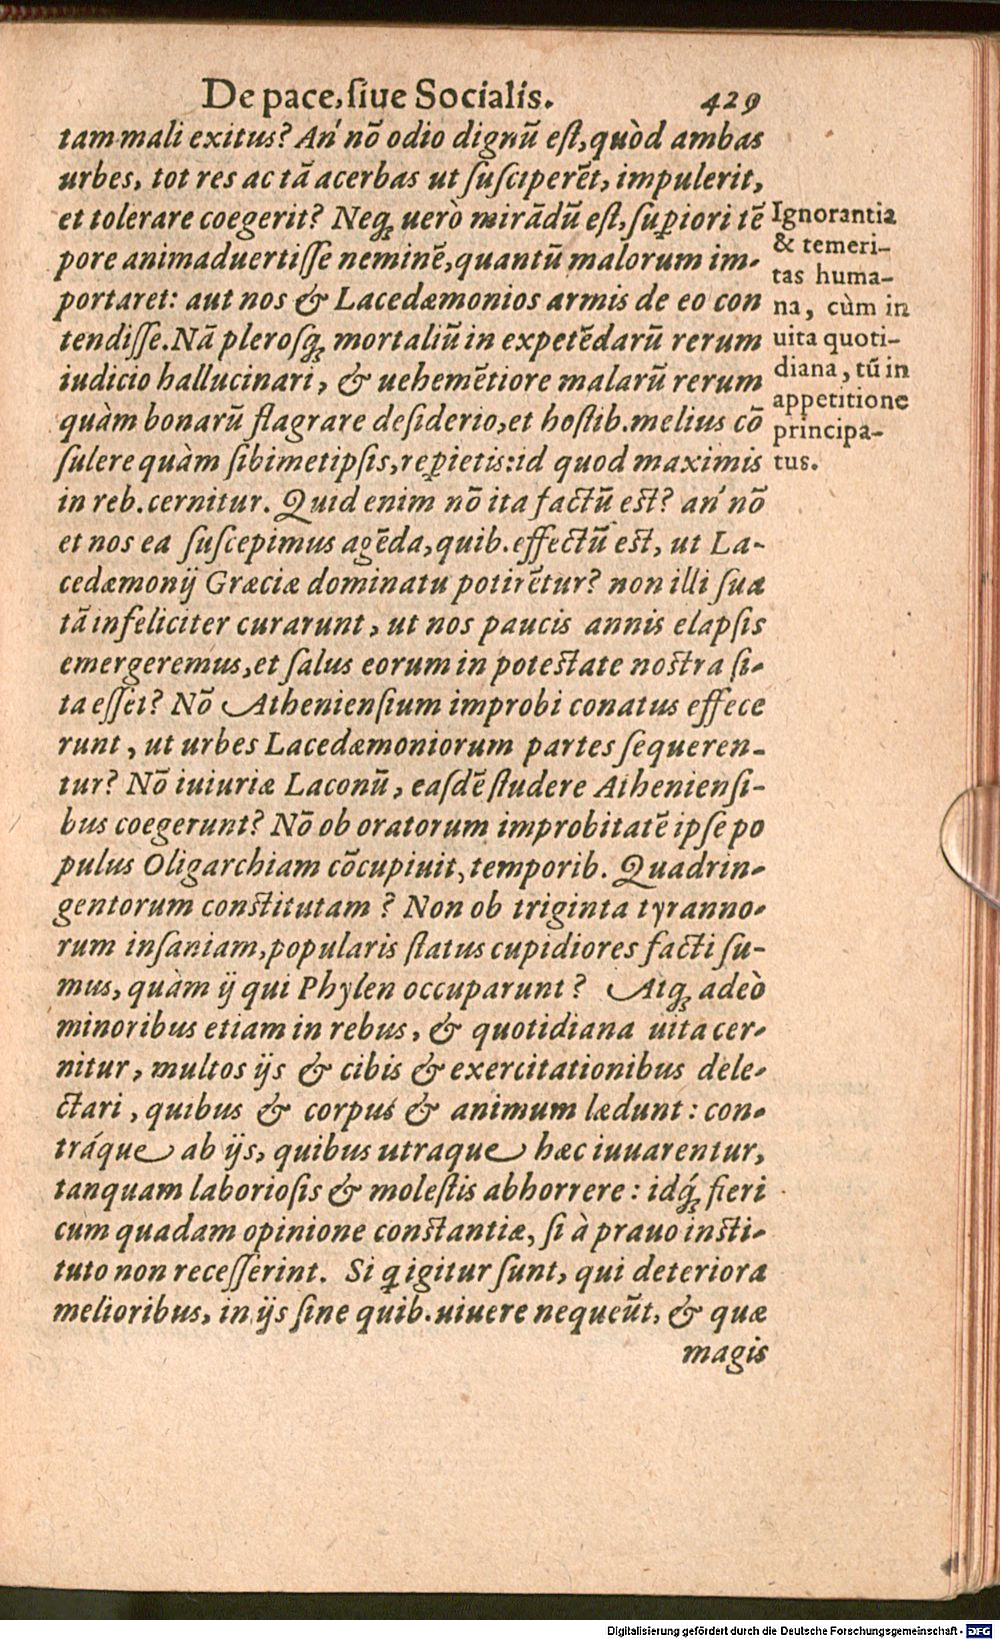 De pace, ſiue Socialis. 429
tam mali exitus? An' nõ odio dignũ eſt, quòd ambas
urbes, tot res ac tã acerbas ut ſuſciperẽt, impulerit,
et tolerare coegerit? Neq; uerò mirãdũ eſt, ſuꝑiori tẽ
pore animaduertiſſe neminẽ, quantũ malorum im-
portaret: aut nos & Lacedæmonios armis de eo con
tendiſſe. Nã pleroſq; mortaliũ in expetẽdarũ rerum
iudicio hallucinari, & uehemẽtiore malarũ rerum
quàm bonarũ flagrare deſiderio, et hoſtib. melius cõ
ſulere quàm ſibimetipſis, reꝑietis: id quod maximis
in reb. cernitur. Quid enim nõ ita factũ est? an' nõ
et nos ea ſuſcepimus agẽda, quib. effectũ est, ut La-
cedæmonij Græciæ dominatu potirẽtur? non illi ſua
tã infeliciter curarunt, ut nos paucis annis elapſis
emergeremus, et ſalus eorum in potestate nostra ſi-
ta eſſet? Nõ Athenienſium improbi conatus effece
runt, ut urbes Lacedæmoniorum partes ſequeren-
tur? Nõ iuiuriæ Laconũ, eaſdẽ ſtudere Athenienſi-
bus coegerunt? Nõ ob oratorum improbitatẽ ipſe po
pulus Oligarchiam cõcupiuit, temporib. Quadrin-
gentorum constitutam? Non ob triginta tyranno-
rum inſaniam, popularis ſtatus cupidiores facti ſu-
mus, quàm ij qui Phylen occuparunt? Atq; adeò
minoribus etiam in rebus, & quotidiana uita cer-
nitur, multos ijs & cibis & exercitationibus dele-
ctari, quibus & corpus & animum lædunt: con-
tráque ab ijs, quibus utraque hæc iuuarentur,
tanquam laborioſis & moleſtis abhorrere: idq́; fieri
cum quadam opinione constantiæ, ſi à prauo insti-
tuto non receſſerint. Si q igitur ſunt, qui deteriora
melioribus, in ijs ſine quib. uiuere nequeũt, & quæ
magis
Ignorantia
& temeri-
tas huma-
na, cùm in
uita quoti-
diana, tũ in
appetitione
principa-
tus.
Digitalisierung gefördert durch die Deutsche Forschungsgemeinschaft - DFG